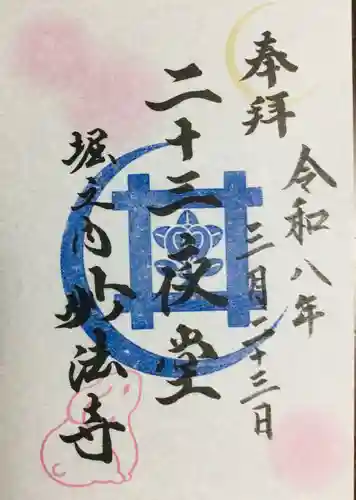 奉拝
令和八年
三月二十三日
二十三夜堂
堀之内妙法寺